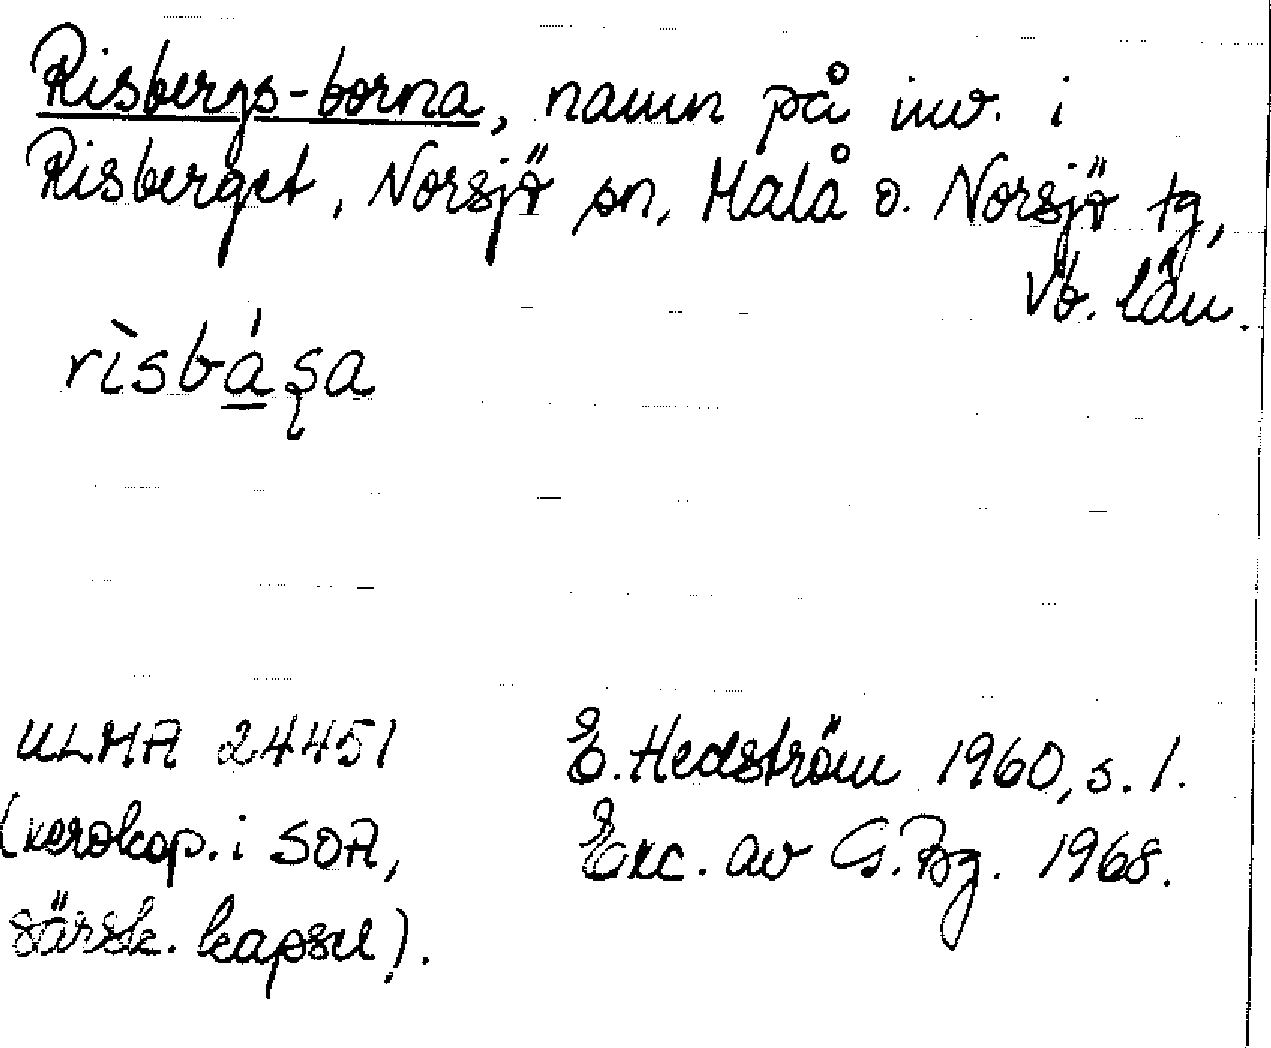 Risbergs-borna, namn på inv. i
Risberget, Norsjö sn, Malå o. Norsjö tg,
Vb. län.
rìsbá̱ʂa
ULMA 24451
(xerokop. i SOA,
särsk. kapsel).
E. Hedström 1960, s. 1.
Exc. av G. Bg. 1968.